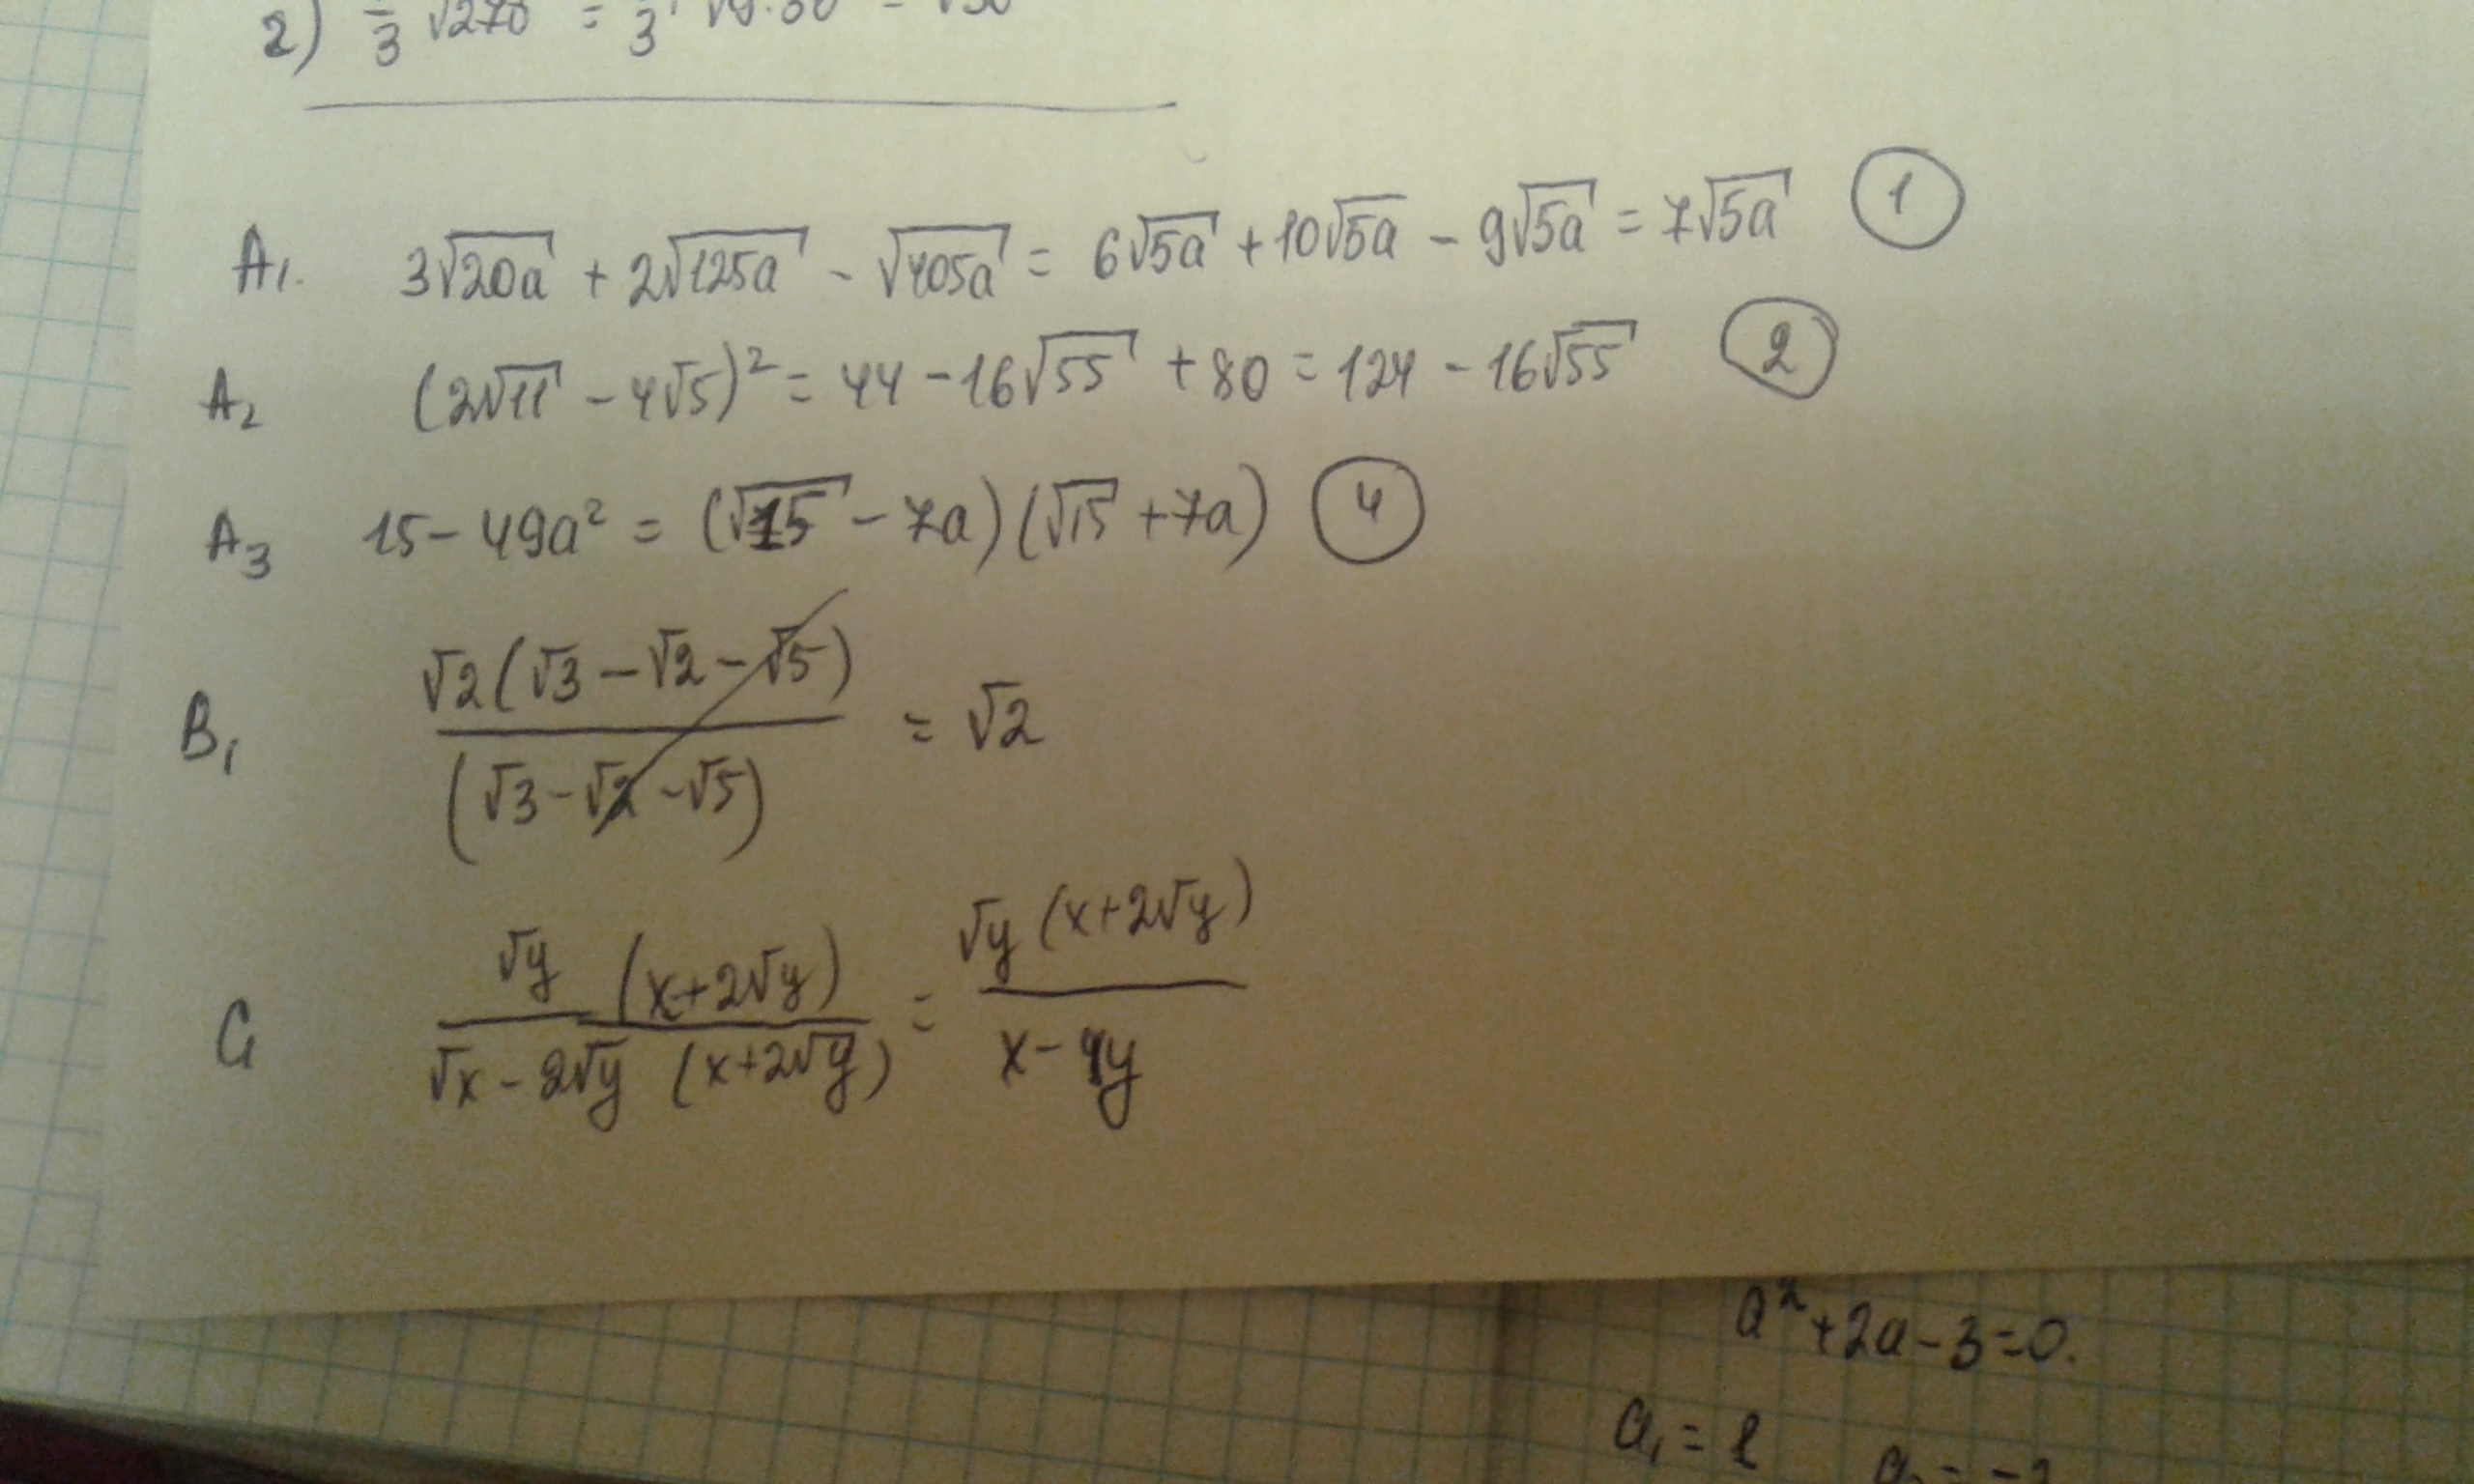 2) 1/3 √270 = 1/3 · √9·30 = √30
A1. 3√20a + 2√125a - √405a = 6√5a + 10√5a - 9√5a = 7√5a (1)
A2 (2√11 - 4√5)² = 44 - 16√55 + 80 = 124 - 16√55 (2)
A3 15 - 49a² = (√15 - 7a)(√15 + 7a) (4)
B1 √2(√3 - √2 - √5) / (√3 - √2 - √5) = √2
C1 √y (x+2√y) / √x - 2√y (x+2√y) = √y (x+2√y) / x - 4y
a² + 2a - 3 = 0.
a1 = 1 a2 = -3